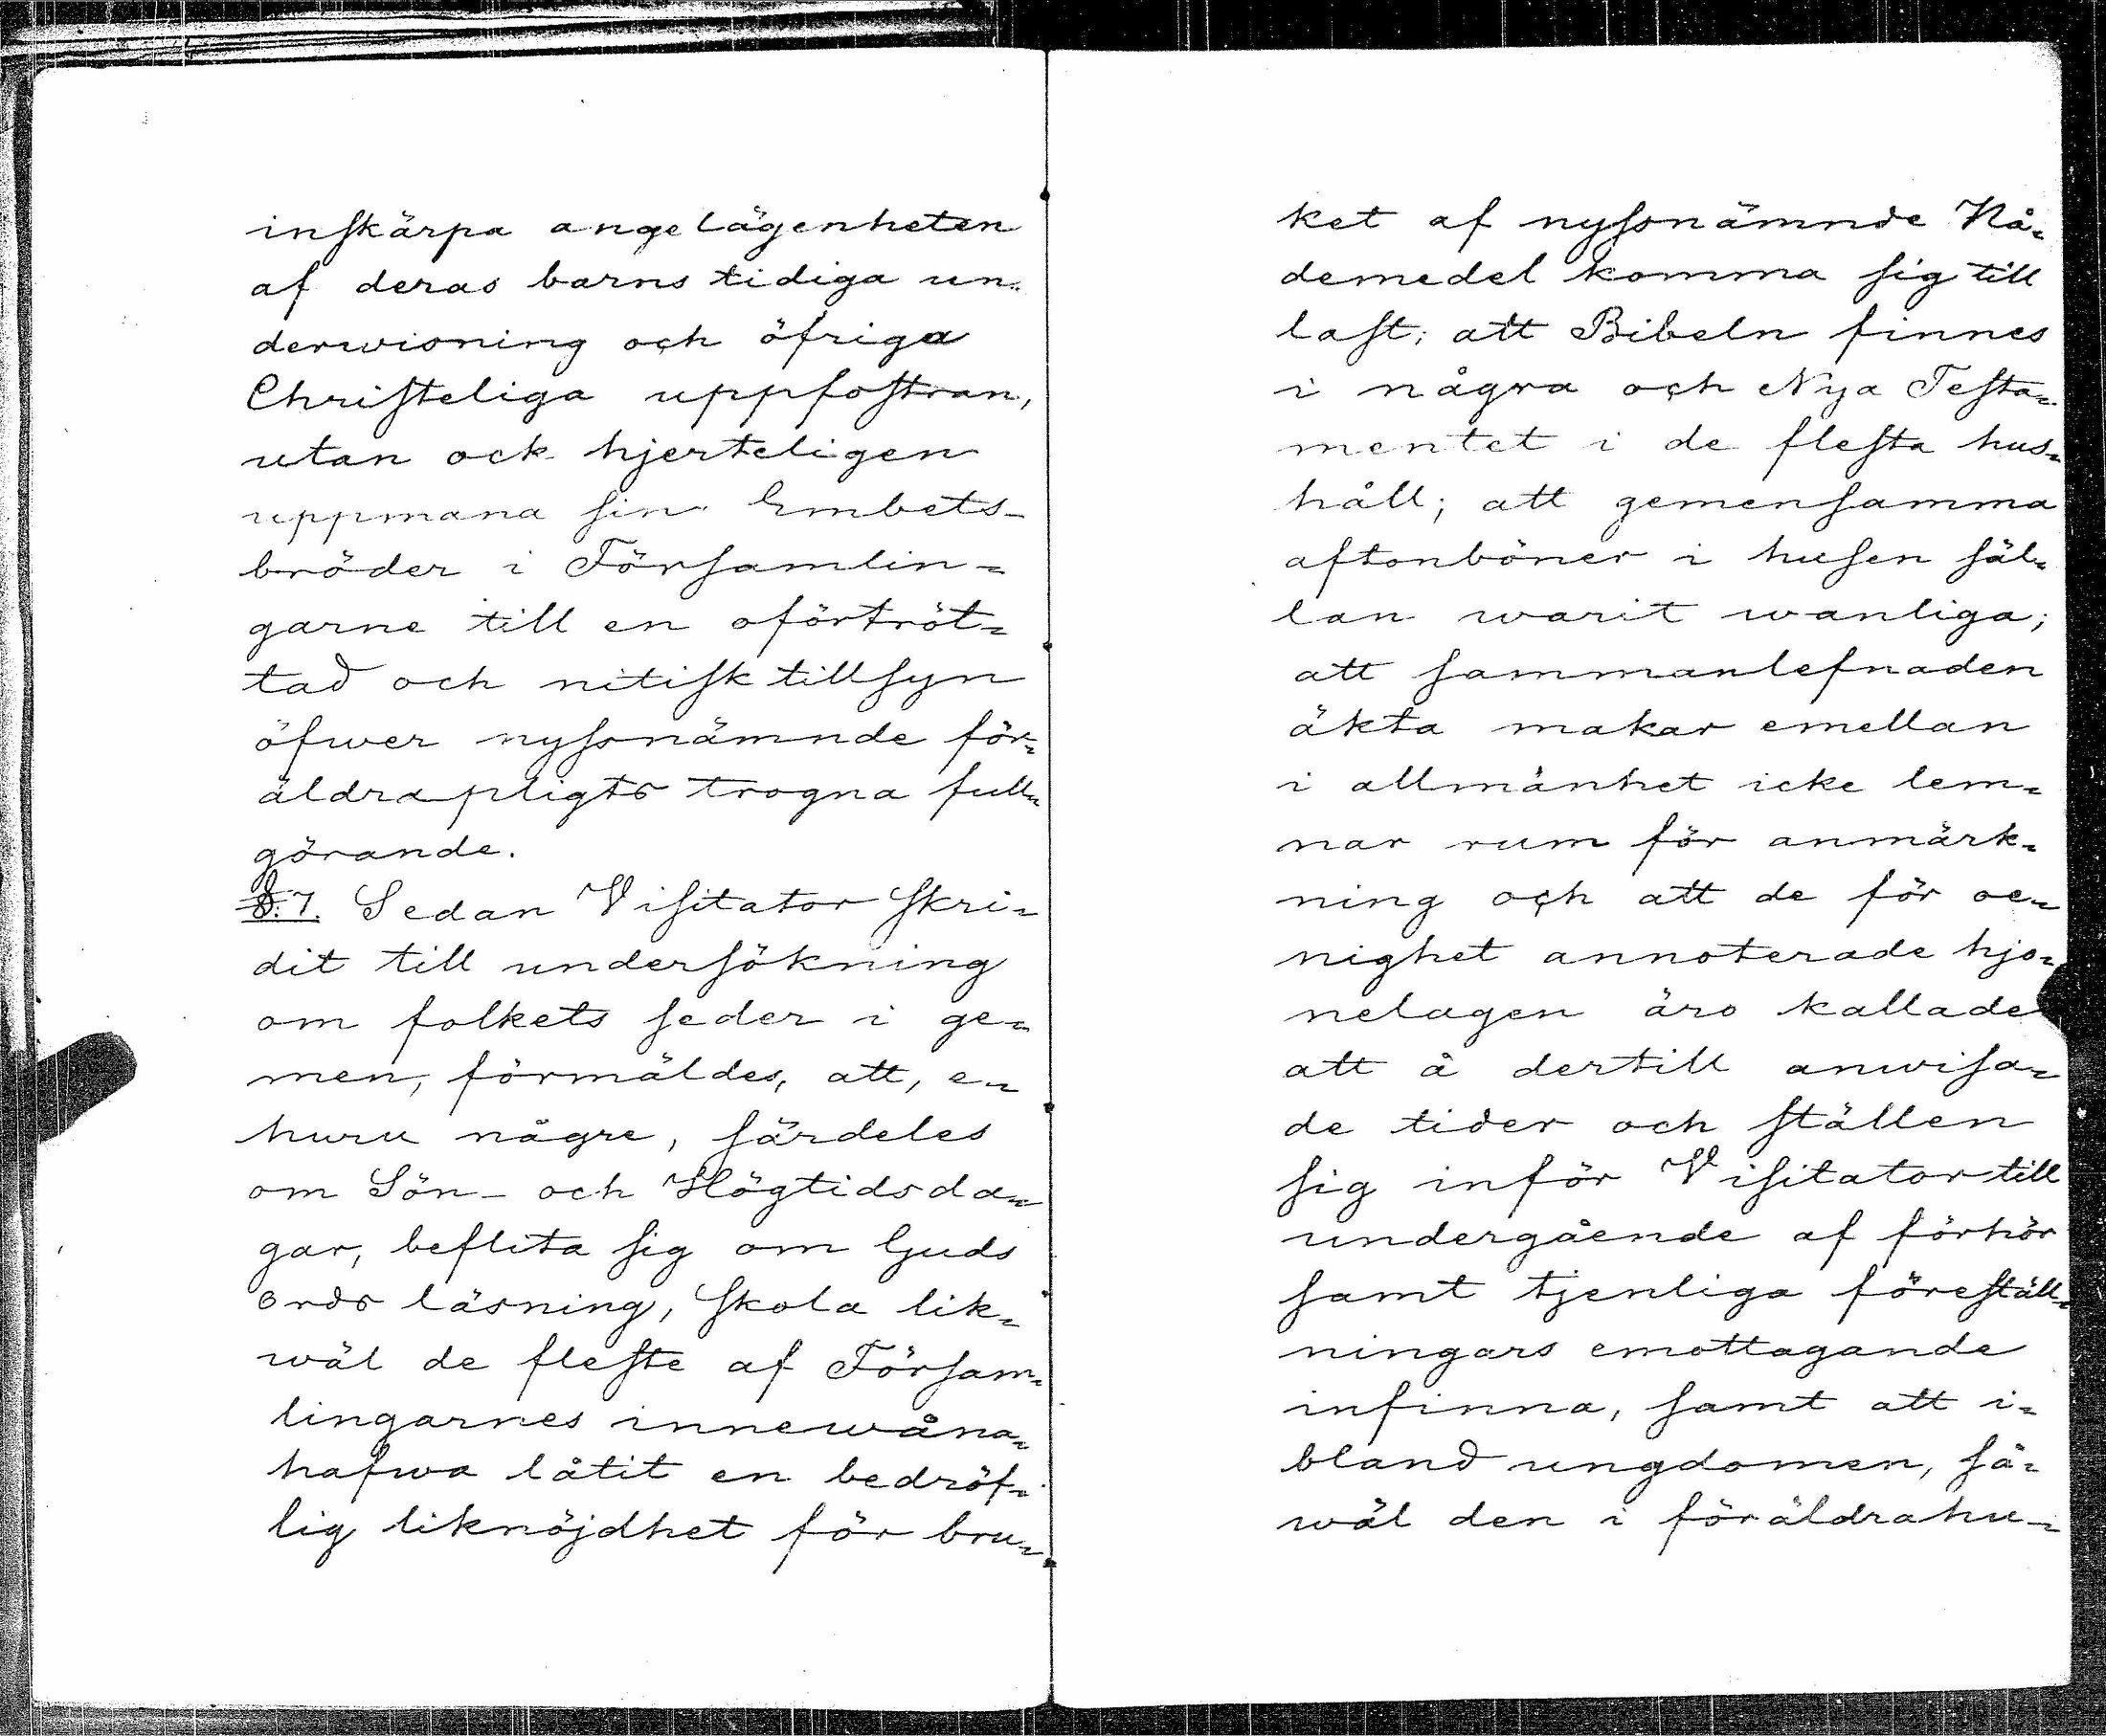 inskärpa angelägenheten
af deras barns tidiga un-
derwisning och öfriga
Christeliga uppfostran,
utan ock hjerteligen
uppmana sin Embets-
bröder i Församlin-
garne till en oförtröt-
tad och nitisk tillsyn
öfwer nyssnämnde för-
äldrapligts trogna full-
görande.
§: 7. Sedan Visitator skri-
dit till undersökning
om folkets seder i ge-
men, förmäldes, att, e-
huru någre, särdeles
om Sön- och Högtidsda-
gar, beflita sig om Guds
ords läsning, skola lik-
wäl de fleste af Försam-
lingarnes innewåna-
hafwa låtit en bedröf-
lig liknöjdhet för bru-
ket af nyssnämnde Nå-
demedel komma sig till
last; att Bibeln finnes
i några och Nya Testa-
mentet i de flesta hus-
håll; att gemensamma
aftonböner i husen säl-
lan warit wanliga;
att sammanlefnaden
äkta makar emellan
i allmänhet icke lem-
nar rum för anmärk-
ning och att de för oe-
nighet annoterade hjo-
nelagen äro kallade
att å dertill anwisa-
de tider och ställen
sig inför Visitator till
undergående af förhör
samt tjenliga föreställ-
ningars emottagande
infinna, samt att i-
bland ungdomen, så-
wäl den i föräldrahu-